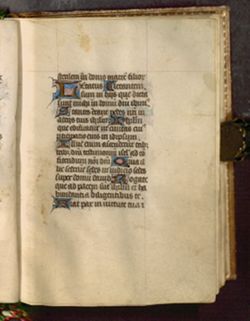 sterilem in domo matrē filior
Letatus letantem
sum in hijs que dicta
sunt michi in domū dñi ibimꝰ
Stantes erant pedes nr̄i in
atrijs tuis ihrlm̄ Ihrlm̄
que edificatur ut civitas cuiꝰ
participatio eius in idipsum
Illuc enim ascenderūt tribꝰ
tribꝰ dñi testimoniū isrl̄ ad cō
fitendum noī dñi Quia il
lic sederūt sedes in iudicio sedes
super domū david Rogate
que ad pacem sūt ihrlm̄ et ha
bundantia diligentibus te
Fiat pax in virtute tua